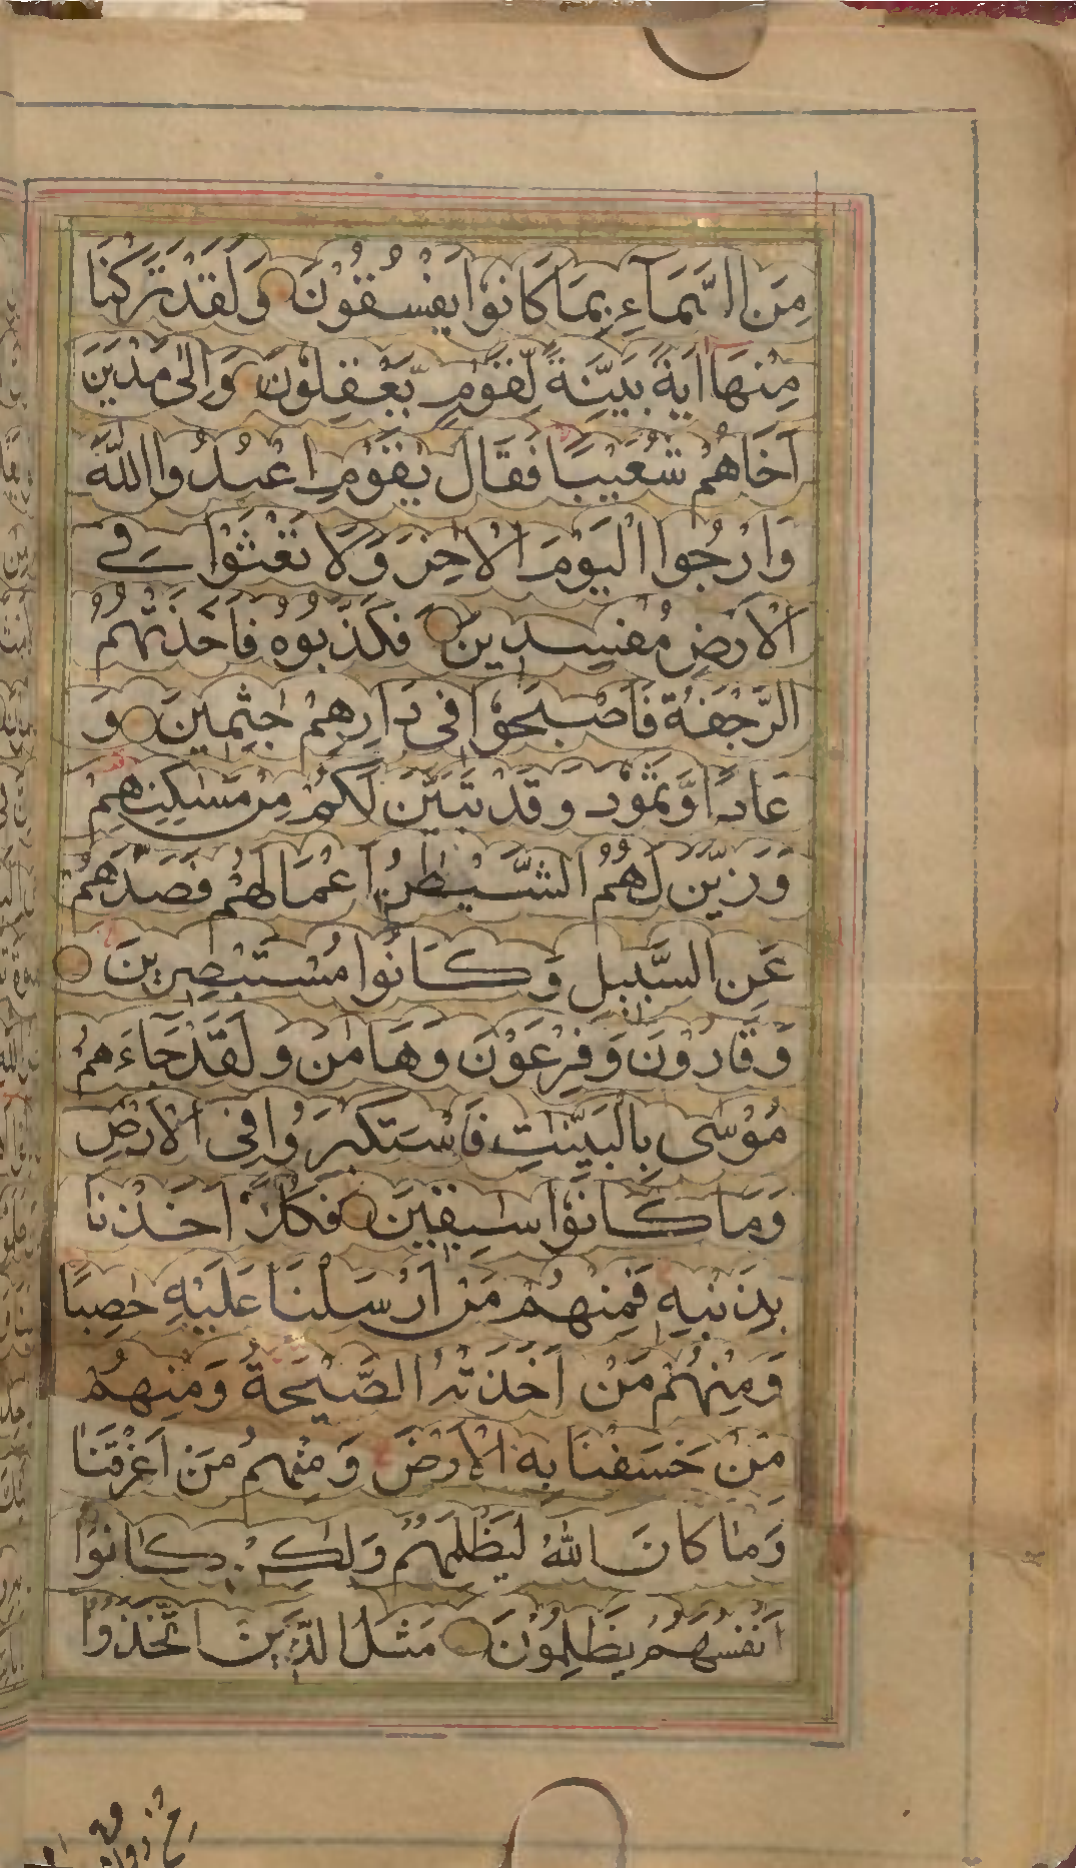 مِنَ السَّمَآءِ بِمَا كَانُوْا يَفْسُقُوْنَ وَلَقَدْ تَرَكْنَا
مِنْهَا اٰيَةً بَيِّنَةً لِّقَوْمٍ يَّعْقِلُوْنَ وَاِلٰى مَدْيَنَ
اَخَاهُمْ شُعَيْبًا فَقَالَ يٰقَوْمِ اعْبُدُوا اللّٰهَ
وَارْجُوا الْيَوْمَ الْاٰخِرَ وَلَا تَعْثَوْا فِے
الْاَرْضِ مُفْسِدِيْنَ فَكَذَّبُوْهُ فَاَخَذَتْهُمُ
الرَّجْفَةُ فَاَصْبَحُوْا فِى دَارِهِمْ جٰثِمِيْنَ وَ
عَادًا وَّثَمُوْدَ وَقَدْ تَّبَيَّنَ لَكُمْ مِنْ مَسٰكِنِهِمْ
وَزَيَّنَ لَهُمُ الشَّيْطٰنُ اَعْمَالَهُمْ فَصَدَّهُمْ
عَنِ السَّبِيلِ وَكَانُوا مُسْتَبْصِرِينَ
وَقَارُوْنَ وَفِرْعَوْنَ وَهَامٰنَ وَلَقَدْ جَآءَهُمْ
مُوْسٰى بِالْبَيِّنٰتِ فَاسْتَكْبَرُوْا فِى الْاَرْضِ
وَمَا كَانُوْا سٰبِقِيْنَ فَكُلًّا اَخَذْنَا
بِذَنْبِهٖ فَمِنْهُمْ مَنْ اَرْسَلْنَا عَلَيْهِ حَاصِبًا
وَمِنْهُمْ مَنْ اَخَذَتْهُ الصَّيْحَةُ وَمِنْهُمْ
مَنْ خَسَفْنَا بِهِ الْاَرْضَ وَمِنْهُمْ مَنْ اَغْرَقْنَا
وَمَا كَانَ اللّٰهُ لِيَظْلِمَهُمْ وَلٰكِنْ كَانُوْا
اَنْفُسَهُمْ يَظْلِمُوْنَ مَثَلُ الَّذِيْنَ اتَّخَذُوْا